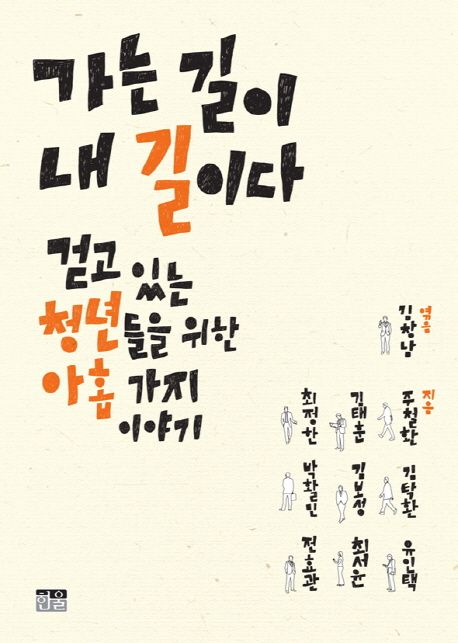 가는 길이
내 길이다
걷고 있는
청년들을 위한
아홉 가지
이야기
김창남 엮음
최정한 김태훈 주철환 지음
박활민 김보성 김탁환
전효관 최서윤 유인택
한울